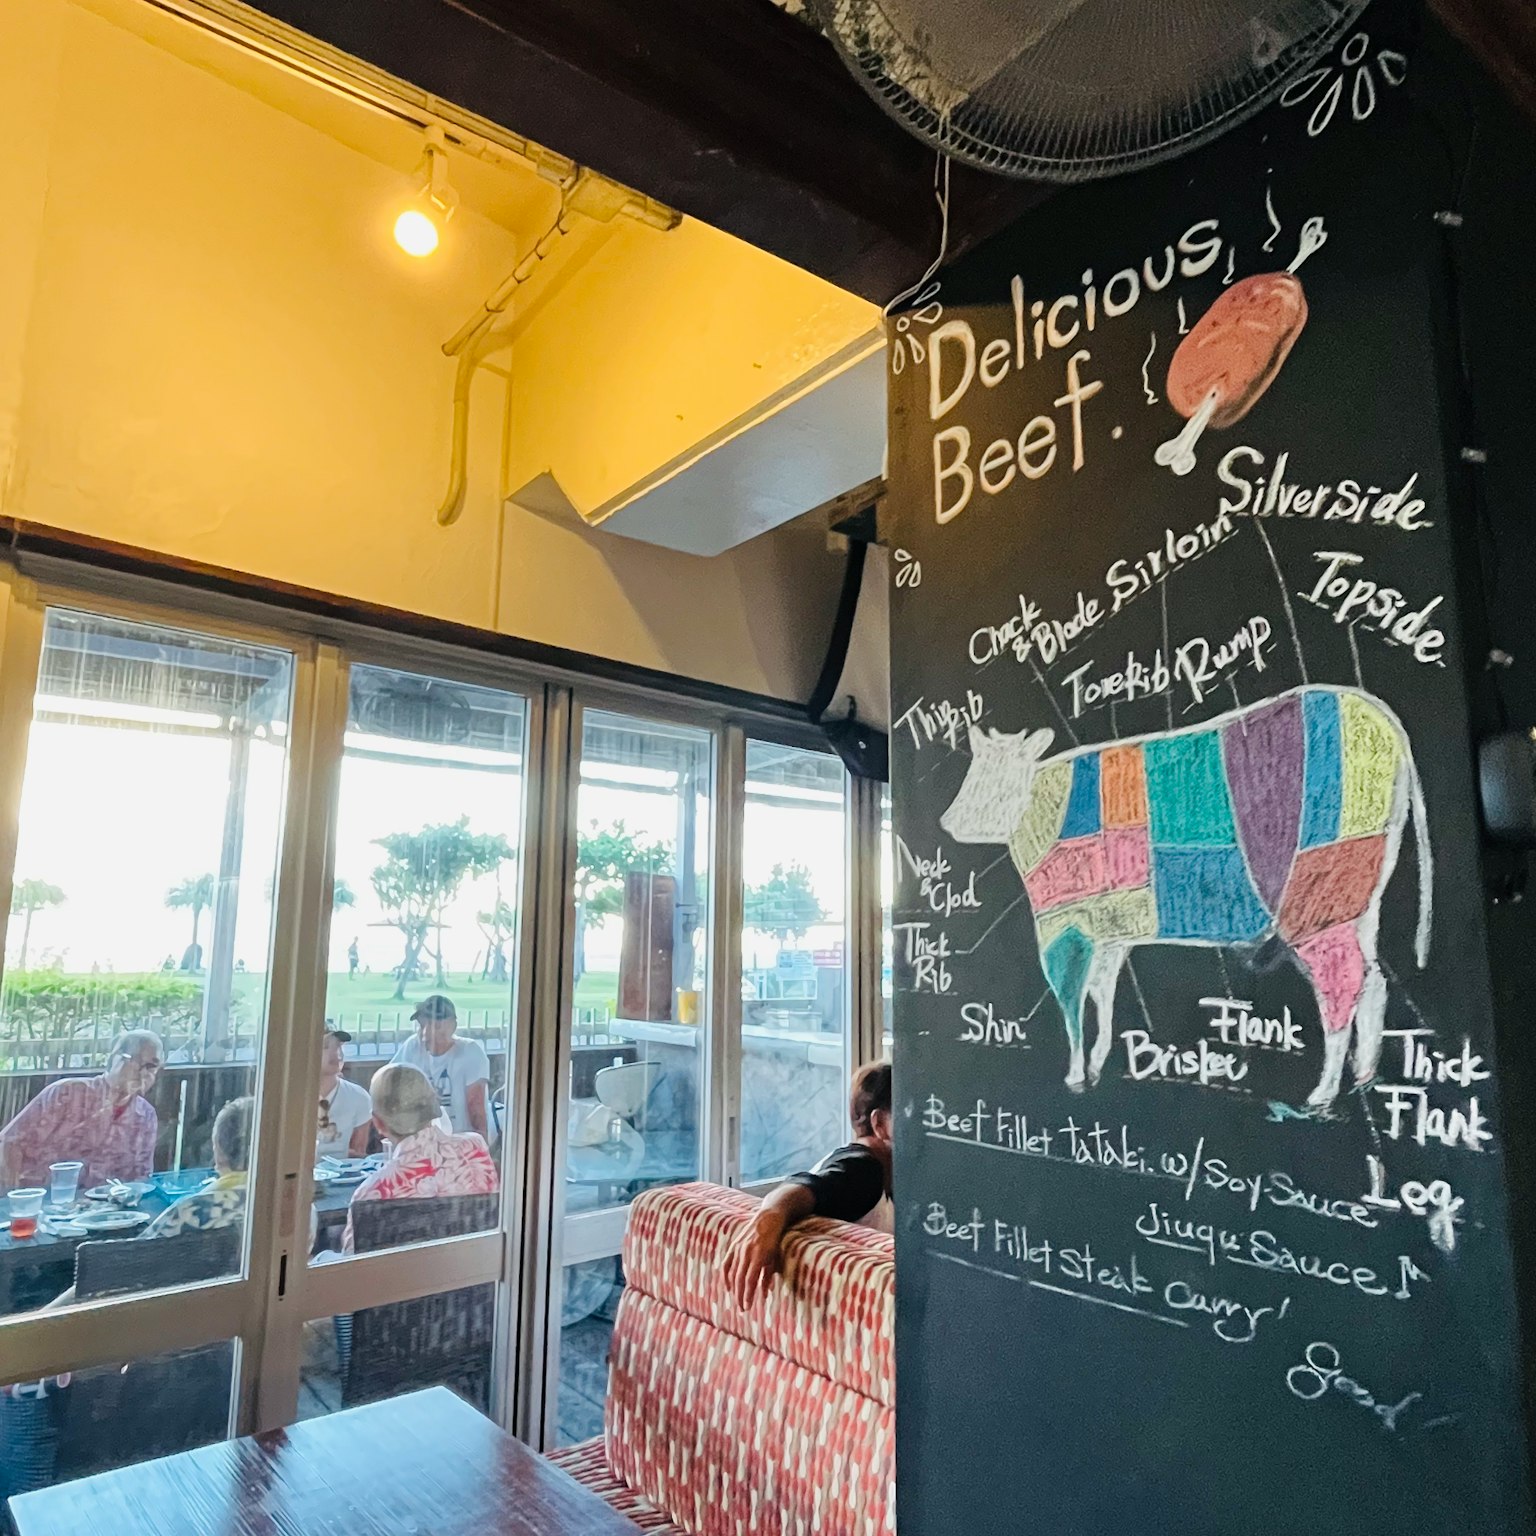 Delicious
Beef.
Silverside
Topside
Sirloin
Chack
& Blade
Rump
ForeRib
Thin Rib
Neck
& Clod
Thick
Rib
Shin
Brisket
Flank
Thick
Flank
Leg
Beef Fillet tataki. w/Soy Sauce
Jiuqu Sauce♪
Beef Fillet Steak Curry!